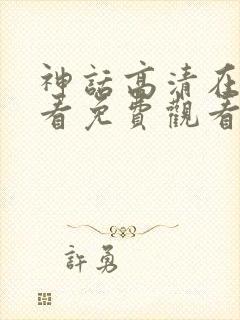 神話高清在
看免費觀看
許勇